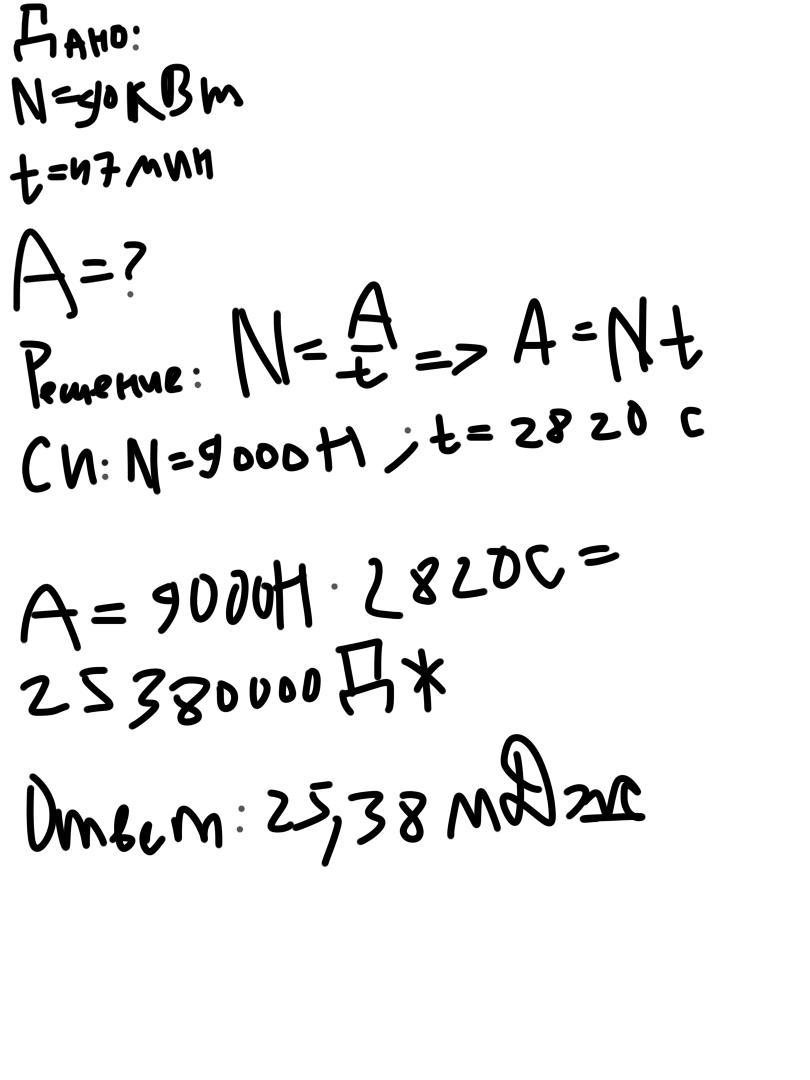 Дано:
N=90кВт
t=47мин
A=?
Решение: N=A/t => A=Nt
СИ: N=9000Н; t=2820 с
A=9000Н·2820с=
25380000Дж
Ответ: 25,38 мДж